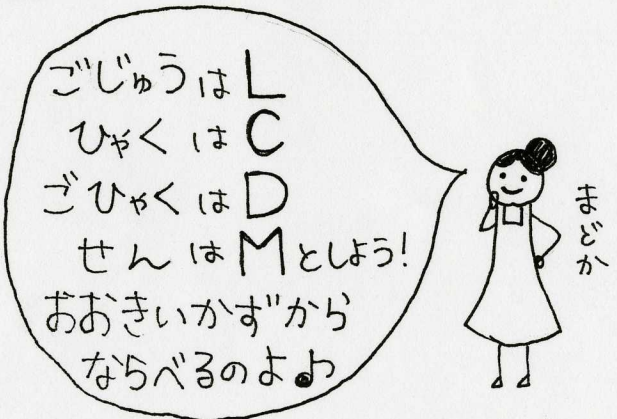 ごじゅうはL
ひゃくはC
ごひゃくはD
せんはMとしよう!
おおきいかずから
ならべるのよ♪
まどか